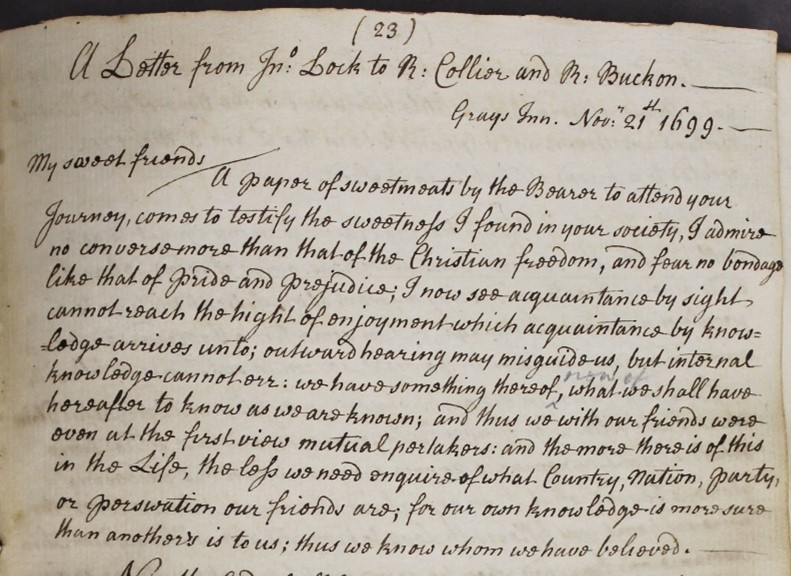 (23)
A Letter from Jn:º Lock to R: Collier and R: Buckon.
Grays Inn. Nov:ʳ 21ˢᵗ 1699.
My sweet friends
A paper of sweetmeats by the Bearer to attend your
Journey, comes to testify the sweetness I found in your society, I admire
no converse more than that of the Christian freedom, and fear no bondage
like that of Pride and Prejudice; I now see acquaintance by sight
cannot reach the hight of enjoyment which acquaintance by know=
=ledge arrives unto; outward hearing may misguide us, but internal
knowledge cannot err: we have something thereof, now of what we shall have
hereafter to know as we are known; and thus we with our friends were
even at the first view mutual pertakers: and the more there is of this
in the Life, the less we need enquire of what Country, Nation, party,
or perswation our friends are; for our own knowledge is more sure
than another's is to us; thus we know whom we have believed.